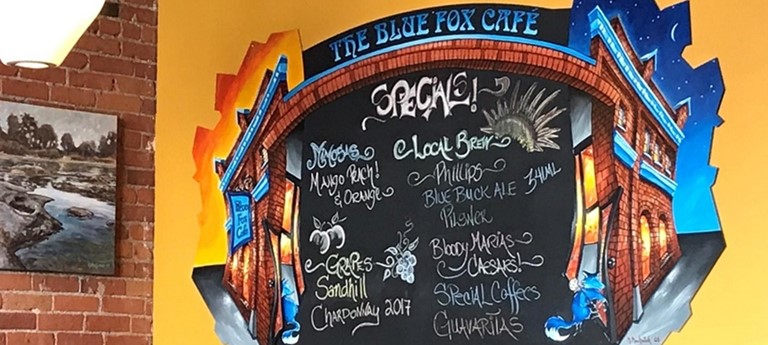 THE BLUE FOX CAFÉ
SPECIALS!
MIMOSAS
MANGO PEACH!
& ORANGE
LOCAL BREW
PHILLIPS
BLUE BUCK ALE 341ML
PILSNER
GRAPES
Sandhill
CHARDONNAY 2017
BLOODY MARIAS
CAESARS!
SPECIAL COFFEES
GUAVARITAS
BLUE
FOX
CAFE